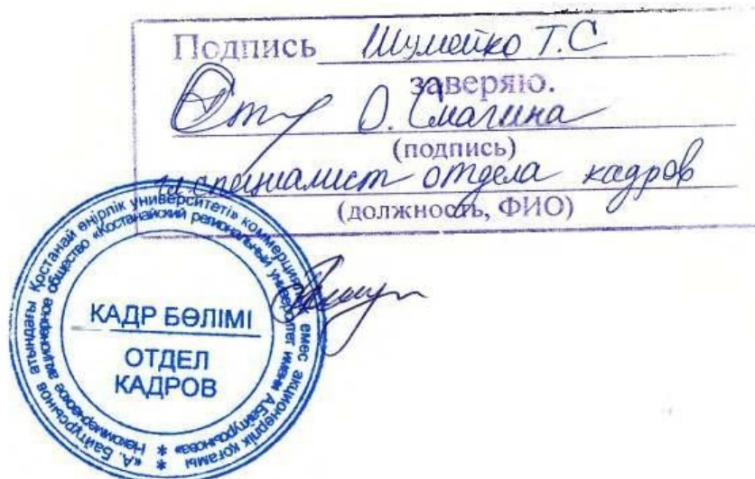 Подпись Шумейко Т.С
заверяю.
О. Смагина
(подпись)
гл. специалист отдела кадров
(должность, ФИО)
«А. Байтұрсынов атындағы Қостанай өңірлік университеті» коммерциялық емес акционерлік қоғамы
Некоммерческое акционерное общество «Костанайский региональный университет имени А.Байтурсынова»
КАДР БӨЛІМІ
ОТДЕЛ
КАДРОВ